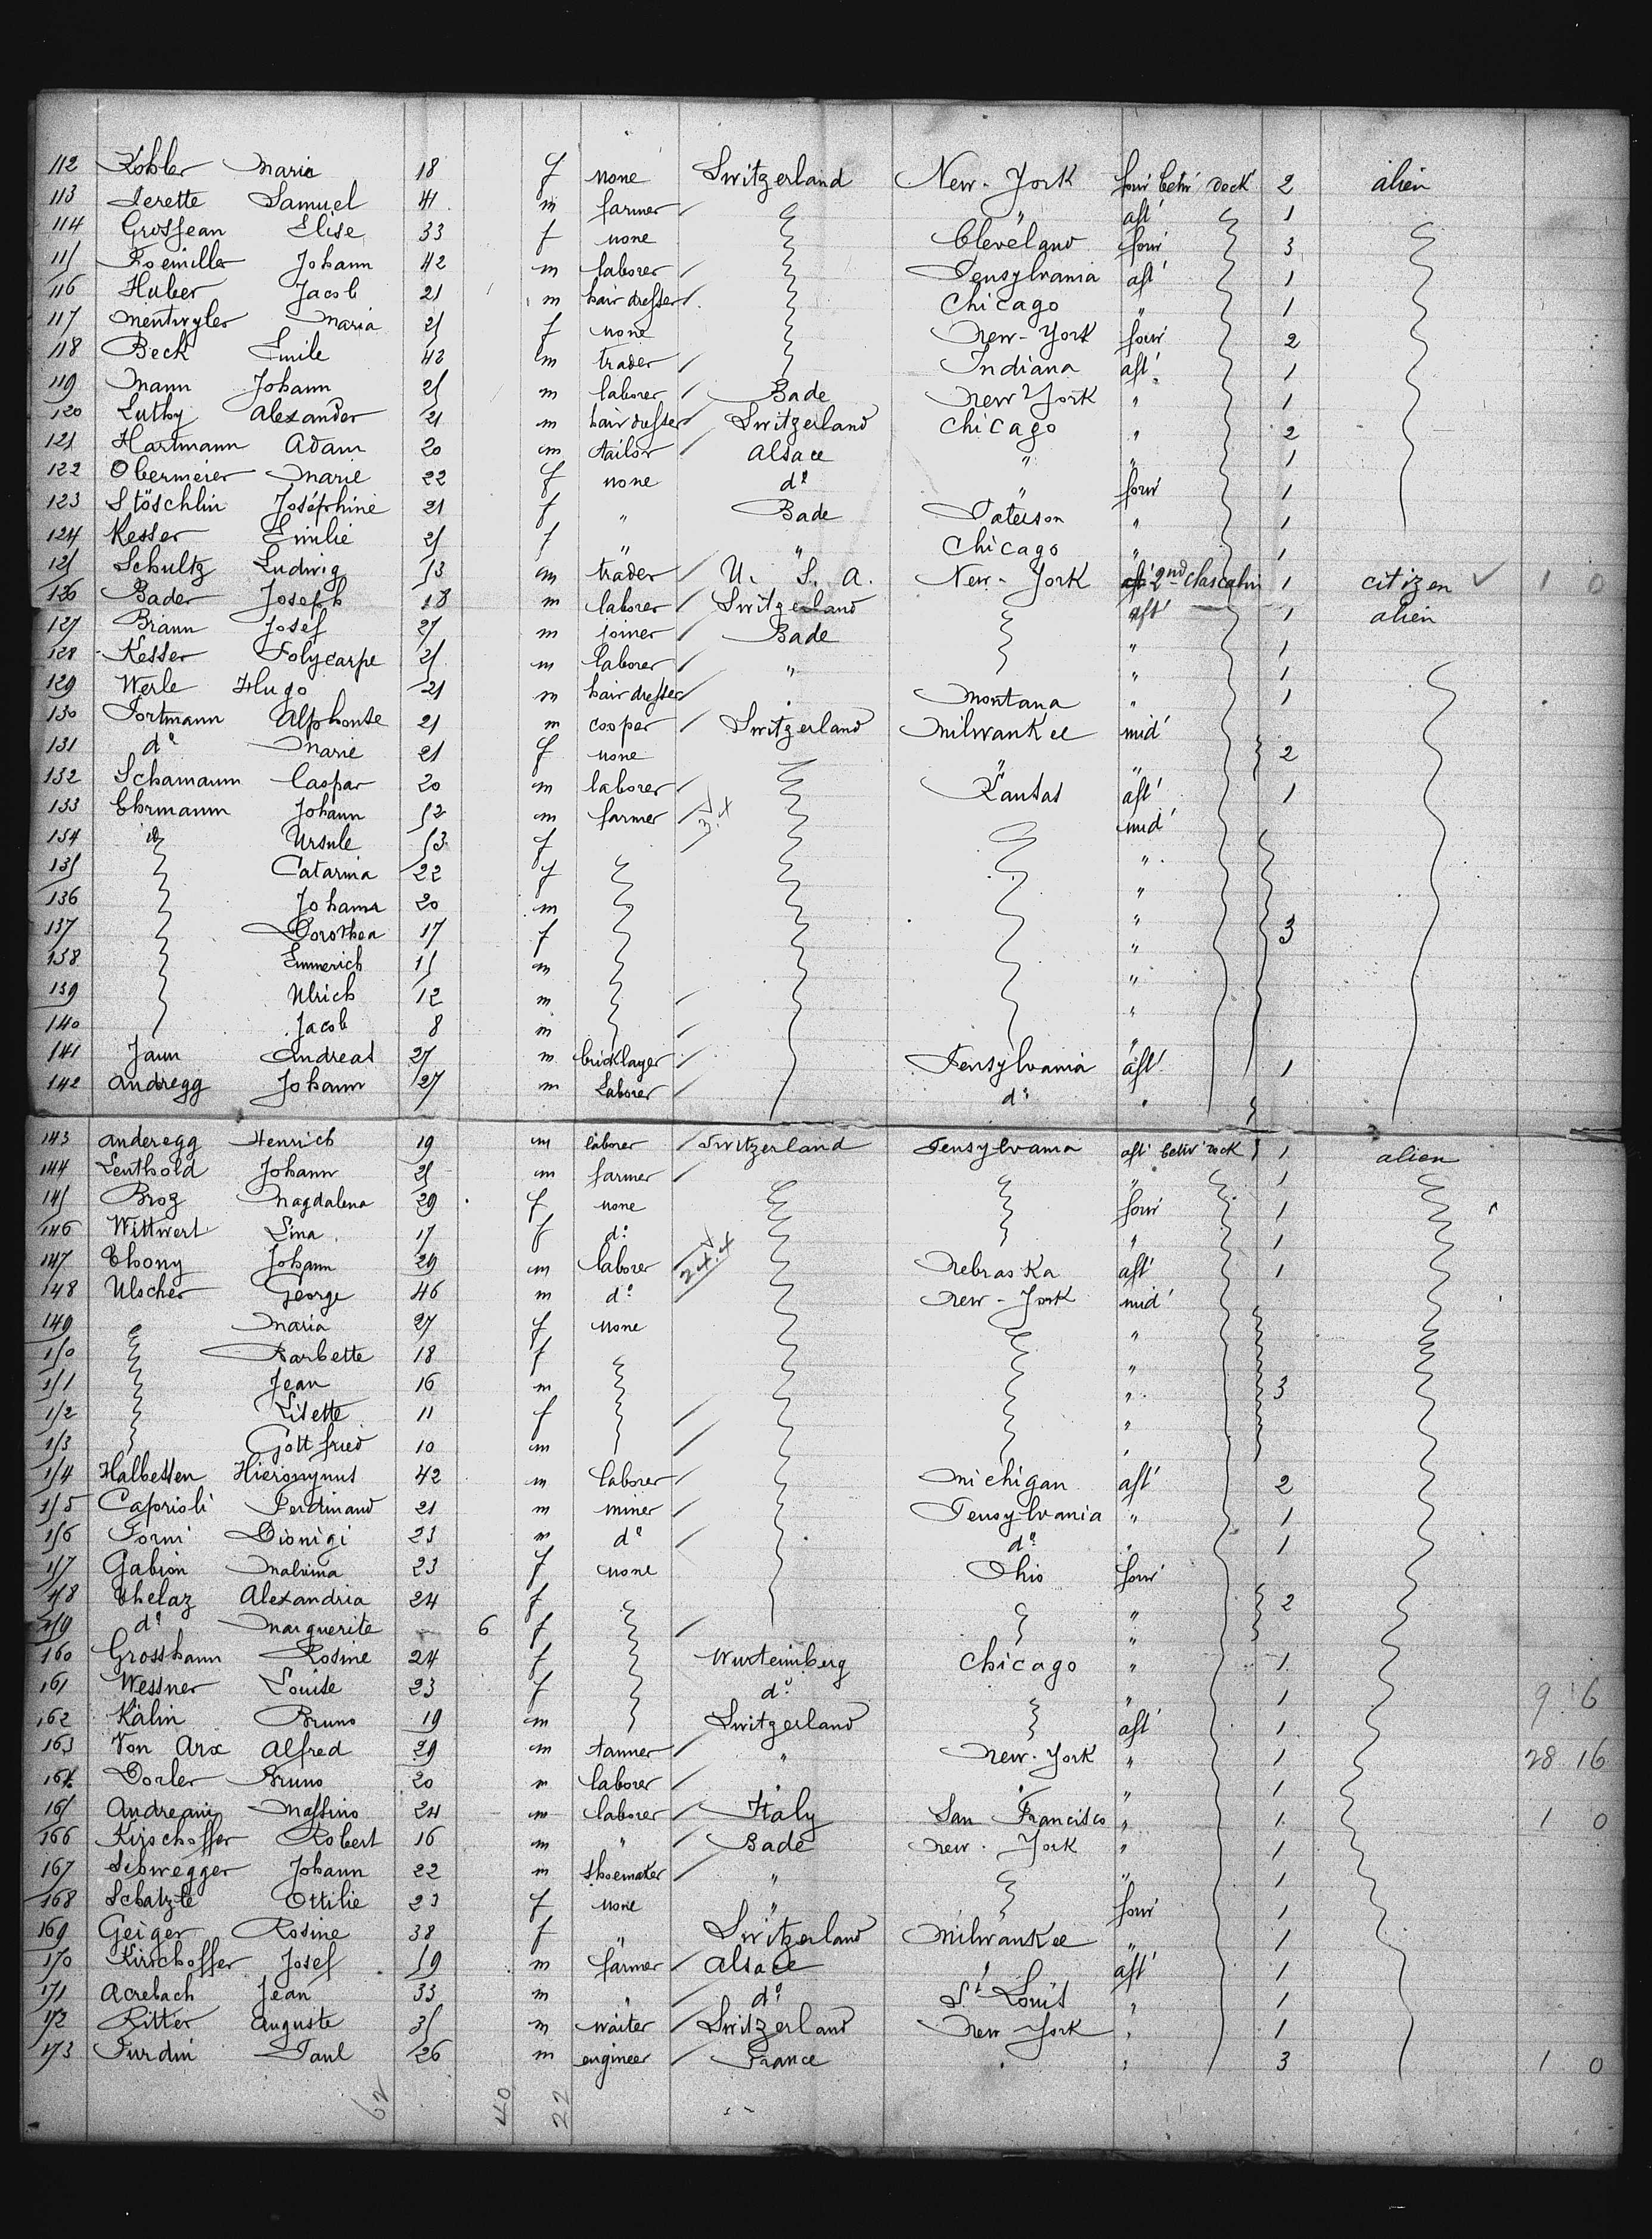 112 Kobler Maria 18 f none Switzerland New-York forw' betw' deck 2 alien
113 Perette Samuel 41 m farmer " aft' 1
114 Grosjean Elise 33 f none Cleveland forw' 3
115 Johann 42 m laborer Pensylvania aft' 1
116 Huber Jacob 21 m hair dresser Chicago " 1
117 Mentwyler Maria 25 f none New-York forw' 2
118 Beck Emile 42 m trader Indiana aft' 1
119 Mann Johann 25 m laborer Bade New York " 1
120 Luthy Alexander 21 m hair dresser Switzerland Chicago " 2
121 Hartmann Adam 20 m tailor Alsace " " 1
122 Obermeier Marie 22 f none d° " forw' 1
123 Stöschlin Joséphine 21 f " Bade Paterson " 1
124 Kesser Emilie 25 f " " Chicago " 1
125 Schultz Ludwig 53 m trader U. S. A. New-York 2nd clas cabin 1 citizen ✓ 1 0
126 Bader Joseph 18 m laborer Switzerland aft' 1 alien
127 Braun Josef 27 m joiner Bade " 1
128 Kesser Polycarpe 25 m laborer " " 1
129 Werle Hugo 21 m hair dresser " Montana " 1
130 Portmann Alphonse 21 m cooper Switzerland Milwaukee mid'
131 d° Marie 21 f none " " 2
132 Schamaun Caspar 20 m laborer Kansas aft' 1
133 Ehrmann Johann 52 m farmer 3.4 mid'
134 d° Ursule 53 f "
135 Catarina 22 f "
136 Johann 20 m "
137 Dorothea 17 f " 3
138 Emmerich 15 m "
139 Ulrich 12 m "
140 Jacob 8 m "
141 Jann Andreas 27 m bricklayer Pensylvania aft' 1
142 Andregg Johann 27 m Laborer d° "
143 Anderegg Henrich 19 m laborer Switzerland Pensylvania aft' betw' deck 1 alien
144 Leuthold Johann 25 m farmer " 1
145 Broz Magdalena 29 f none forw' 1
146 Wittwert Lina 17 f d° " 1
147 Thony Johann 29 m laborer 2.4.4 Nebraska aft' 1
148 Ulscher George 46 m d° New-York mid'
149 Maria 27 f none "
150 Barbette 18 f "
151 Jean 16 m " 3
152 Lisette 11 f "
153 Gottfried 10 m "
154 Halbetten Hieronymus 42 m laborer Michigan aft' 2
155 Caprioli Ferdinand 21 m miner Pensylvania " 1
156 Forni Dionigi 23 m d° d° " 1
157 Gabion Malvina 23 f none Ohio forw'
158 Thelaz Alexandria 24 f " 2
159 d° Marguerite 6 f "
160 Grosshann Rosine 24 f Wurtemberg Chicago " 1
161 Wessner Louise 23 f d° " 1 9 16
162 Kälin Bruno 19 m Switzerland aft' 1
163 Von Arx Alfred 29 m tanner " New-York " 1 28 16
164 Dorler Bruno 20 m laborer " " " 1
165 Andreani Massino 24 m laborer Italy San Francisco " 1 1 0
166 Kirschoffer Robert 16 m " Bade New-York " 1
167 Schwegger Johann 22 m shoemaker " " 1
168 Schatzle Ottilie 23 f none " forw' 1
169 Geiger Rosine 38 f " Switzerland Milwaukee " 1
170 Kirschoffer Josef 59 m farmer Alsace " aft' 1
171 Acrebach Jean 33 m " d° St Louis " 1
172 Ritter Auguste 35 m waiter Switzerland New York " 1
173 Furdin Paul 26 m engineer France " " 3 1 0
62 40 22